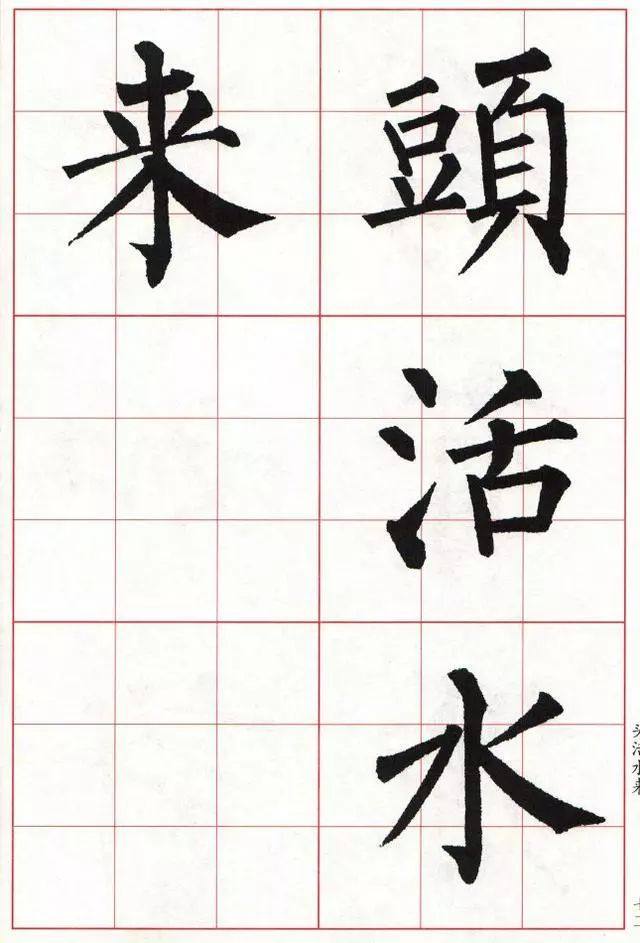 頭活水
来
头活水来